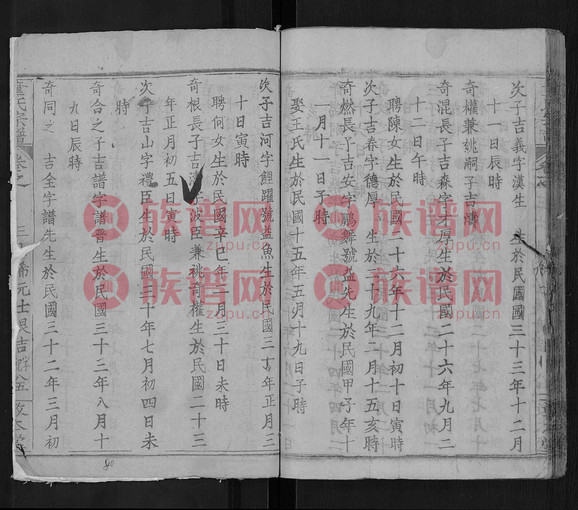 次子吉義字漢生 生於民國三十三年十二月
十一日辰時
奇權兼祧嗣子吉
奇混長子吉森字大厚生於民國二十六年九月二
十二日午時
聘陳女生於民國二十六年十二月初十日寅時
次子吉春字德厚 生於三十九年二月十五亥時
奇燃長子吉安字鵬舞號益先生於民國甲子年十
一月十一日子時
娶王氏生於民國十五年五月十九日子時
次子吉河字鯉躍號益魚生於民國三十年正月三
十日寅時
聘何女生於民國辛巳年一月三十日未時
奇根長子吉 波臣兼祧奇權生於民國二十三
年正月初五日寅時
次子吉山字禮臣生於民國三十年七月初四日未
時
奇合之子吉譜字譜晋生於民國三十三年八月十
九日辰時
奇同之 吉全字譜先生於民國三十二年三月初
氏宗譜 卷之
族谱网
zupu.cn
族谱网
zupu.cn
族谱网
zupu.cn
族谱网
zupu.cn
族谱网
zupu.cn
族谱网
zupu.cn